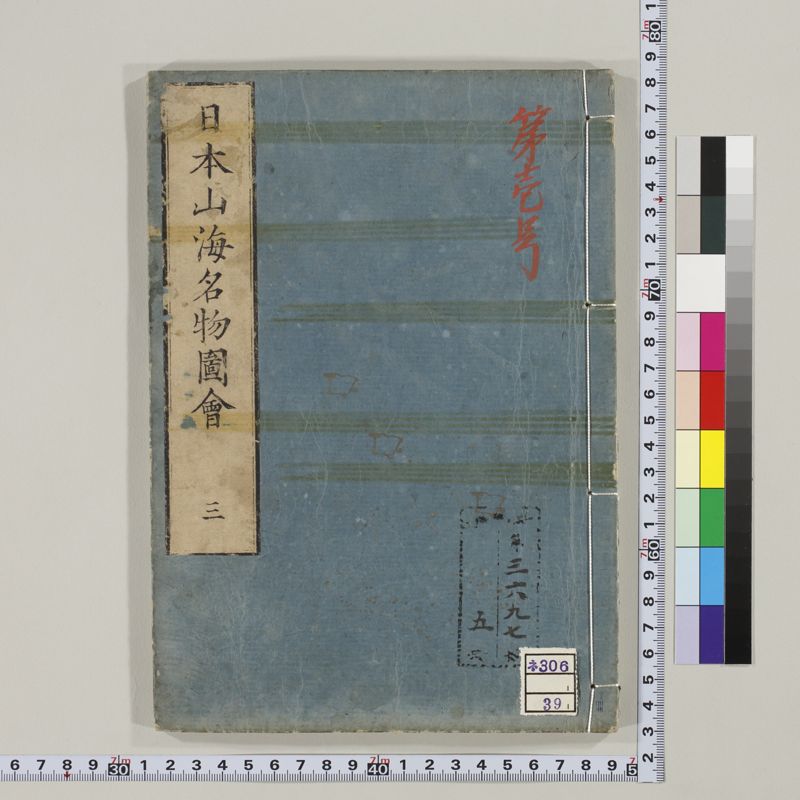 日本山海名物圖會
三
第壱号
三六九七
五
ネ306
39
6 7 8 9 30 1 2 3 4 5 6 7 8 9 40 1 2 3 4 5 6 7 8 9 5
1 80 9 8 7 6 5 4 3 2 1 70 9 8 7 6 5 4 3 2 1 60 9 8 7 6 5 4 3 2